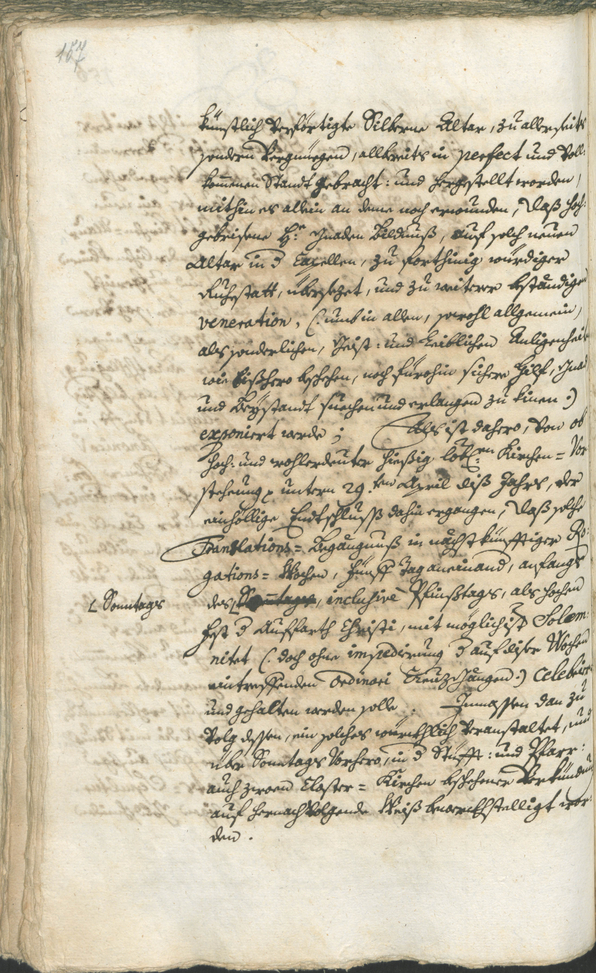 157
künstlich verförtigte Silberne Altar, zu allerseits
sondern Vergnüegen, allbereits in perfect und Voll¬
komenen Standt gebracht: und hergestellt worden,
mithin es allein an deme noch erwunden, daß hoch¬
gebrisene H: Gnaden Bildnuß, auf solch neuen
Altar in d Capellen, zu forthinig würdiger
Ruhestatt, übersezet, und zu weiterer beständiger
veneration, (: umb in allen, sowohl allgemein,
als sonderlichen, Geist: und Leiblichen Anligenheiten
wie bißhero beschehen, noch fürohin sichere Hilf, Gnad
und Beystandt suechen und erlangen zu könen :)
exponiert werde; Als ist dahero, von ob
hoch: und wohlerdeuter hießig löbl: Kirchen= Vor
stehung p untern 29.ten April diß Jahrs, der
einhöllige Endtschluß dahin ergangen, daß solche
Translations= Begängnuß in nächstkünfftiger Ro¬
gations= Wochen, fünff Tag aneinand, anfangs
L Sonntags
des Sonntags, inclusive Pfinßtags, als hochen
Fest d Auffarth Christi, mit möglichist Solem¬
nitet (: doch ohne impedirung d auf diser Wochen
eintreffenden ordinari Creuzgängen :) celebrirt
und gehalten werden solle. Inmassen dan zu
Volg dessen, ein solches würcklich veranstaltet, und
über Sonntags Vorhero, in d Stüfft: und Pfarr:
auch zweien Closter= Kirchen beschehener Verkündung
auf hernachvolgende Weiß bewerckhstelligt wor¬
den.